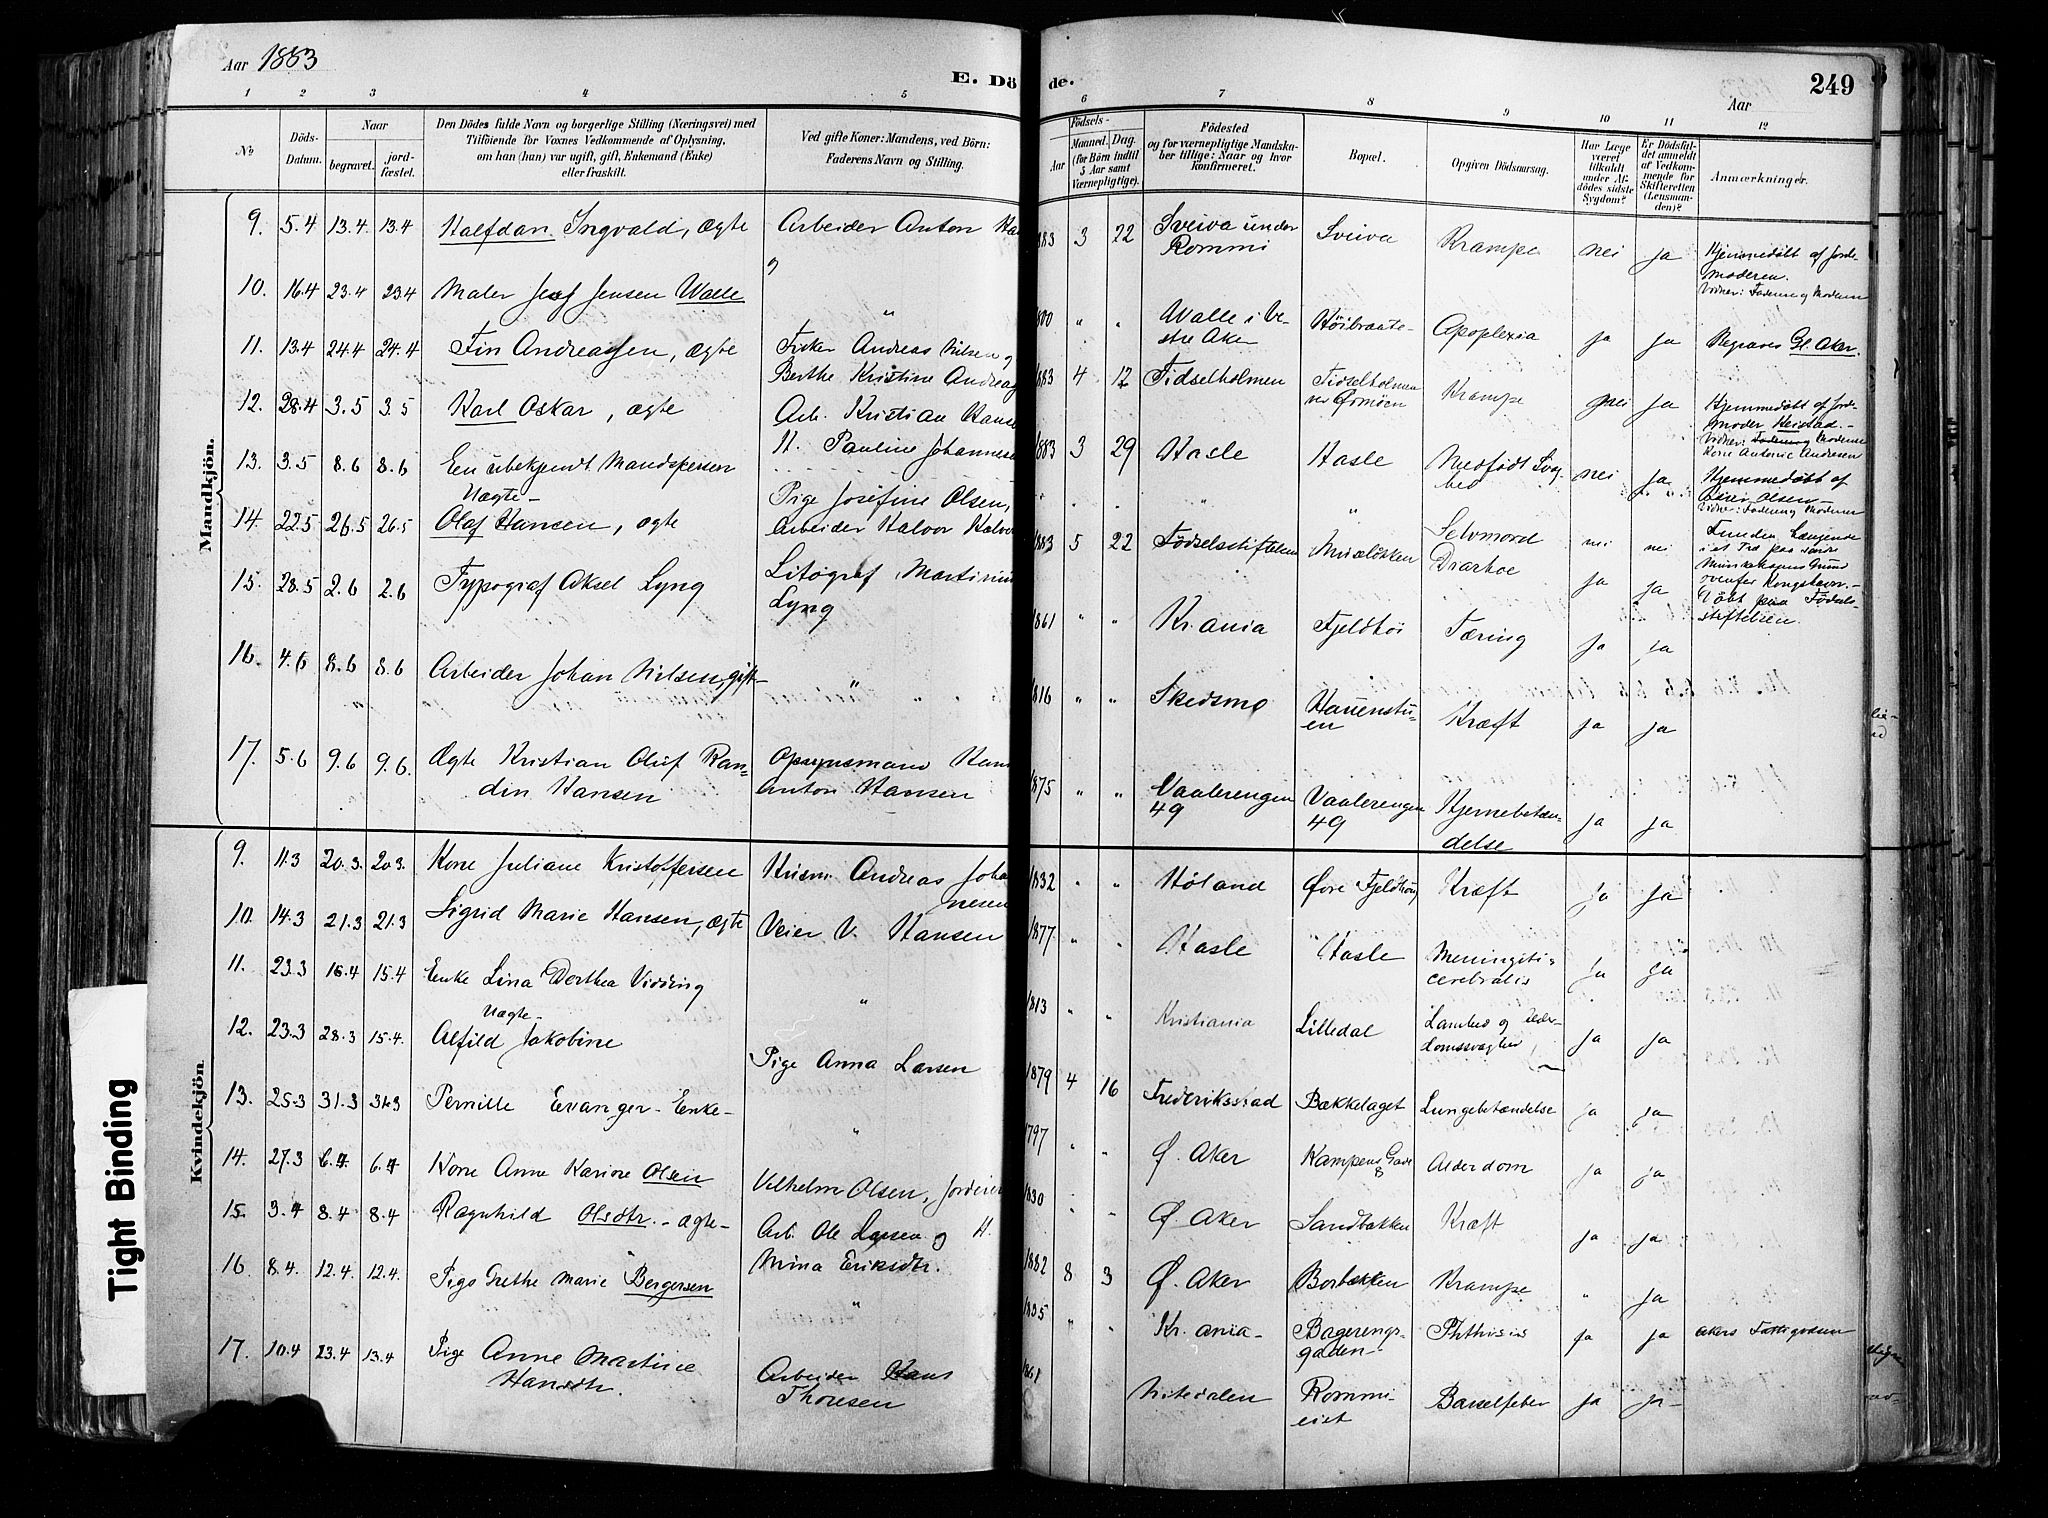 Aar 1883
E. Dö
de.
249
Aar
1 2 3 4 5 6 7 8 9 10 11 12
No
Döds-
Datum.
Naar
begravet.
jord-
fæstet.
Den Dödes fulde Navn og borgerlige Stilling (Næringsvei) med
Tilföiende för Voxnes Vedkommende af Oplysning,
om han (hun) var ugift, gift, Enkemand (Enke)
eller fraskilt.
Ved gifte Koner: Mandens, ved Börn:
Faderens Navn og Stilling.
Födsels-
Aar
Maaned. Dag.
(for Börn indtil
5 Aar samt
Værnepligtige).
Födested
og for værnepligtige Mandska-
ber tillige: Naar og hvor
konfirmeret.
Bopæl.
Opgiven Dödsaarsag.
Har Læge
været
tilkaldt
under Af-
dödes sidste
Sygdom?
Er Dödsfal-
det anmeldt
af Vedkom-
mende for
Skifteretten
(Lensman-
den)?
Anmærkninger.
Mandkjön.
9. 5.4 13.4. 13.4 Halfdan Ingvald, ægte Arbeider Anton Ha
883 3 22 Sveiva under
Rommi Sveiva Krampe nei ja Hjemmedøbt af Jorde-
moderen.
10. 16.4 23.4 23.4 Maler Jensen Walle "
800 " " Walle i Ve-
stre Aker Høibraate- Apoplexia ja ja Begraves Gl. Aker.
11. 13.4 24.4 24.4 Fin Andreassen, ægte Fisker Andreas Nilsen og
Berthe Kristine Andreas
883 4 12 Tidselholmen Tidselholmen
ved Ormøen Krampe nei ja Hjemmedøbt af Jorde-
moder
12. 28.4 3.5 3.5 Karl Oskar, ægte Arb. Kristian Hans
H. Pauline Johannes
1883 3 29 Hasle Hasle Medfødt Svag-
hed nei ja Hjemmedøbt af
Olsen-
13. 3.5 8.6 8.6 En ubekjendt Mandsperson
" " Selvmord nei nei Funden hængende
i et Træ paa
Grund
ovenfor Kongshavn.-
Uægte-
14. 22.5 26.5 26.5 Olaf Hansen, ægte Pige Josefine Olsen,
Arbeider Halvor Halvor
883 5 22 Födselsstiftelsen Munkeløkken Diarhoe ja ja Døbt paa Fødsels-
stiftelsen.
15. 28.5 2.6 2.6 Typograf Aksel Lyng Litograf Martinius
Lyng
1861 " " Kr.ania Fjeldhøi Tæring ja ja
16. 4.6 8.6 8.6 Arbeider Johan Nilsen, gift- "
1816 " " Skedsmo Hauenstu-
en Kræft ja ja
17. 5.6 9.6 9.6. Ægte Kristian Oluf Ran-
din Hansen Opsynsmand Hans
Anton Hansen
1875 " " Vaalerengen
49 Vaalerengen
49 Hjernebetæn-
delse ja ja
Kvindekjön
9. 11.3 20.3. 20.3. Kone Juliane Kristoffersen Husm. Andreas Joha
nesen
1832 " " Høland Øvre Fjeldhøi Kræft ja ja
10. 14.3 21.3 21.3 Sigrid Marie Hansen, ægte Veier V. Hansen
1877 " " Hasle Hasle Meningitis
cerebralis ja ja
11. 23.3 16.4 15.4 Enke Lina Dorthea Vidding "
1813 " " Kristiania Lilledal Lamhed og Alder-
domssvaghed ja ja
Uægte-
12. 23.3 28.3 15.4. Alfild Jakobine Pige Anna Larsen
1879 4 16 Frederiksstad Bækkelaget Lungebetændelse ja ja
13. 25.3 31.3 31.3 Pernille Evanger- Enke- "
1797 " " Ø. Aker Kampens Gade
8 Alderdom ja ja
14. 27.3 6.4 6.4 Kone Anne Karine Olsen Vilhelm Olsen, Jordeier
1830 " " Ø. Aker Sandbakken Kræft ja ja
15. 3.4 8.4 8.4 Ragnhild Olsdtr.- ægte- Arb. Ole Larsen og H.
Mina Eriksdtr.
1882 8 3 Ø. Aker Borbakken Krampe " ja
16. 8.4. 12.4. 12.4. Pige Grethe Marie Bergersen "
1835 " " Kr.ania- Bagerengs-
gaden- Phthisis ja ja Akers Fattigvæsen
17. 10.4 23.4 13.4 Pige Anne Martine
Hansdtr. Arbeider Hans
Thoresen
1861 Nitedalen Rommi-
eiet Barselfeber ja ja
Tight Binding